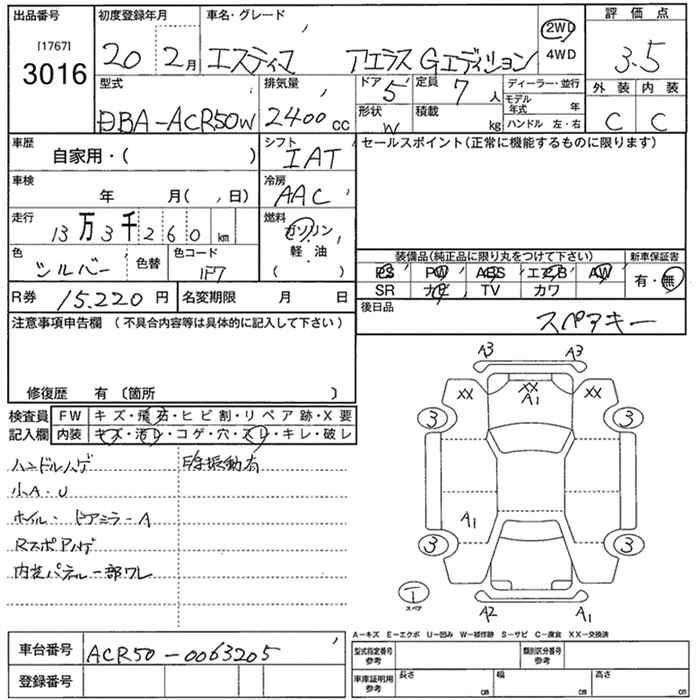 出品番号
[1767]
3016
初度登録年月
20年2月
車名・グレード
エスティマ アエラス Gエディション
2WD
4WD
評価点
3.5
型式
DBA-ACR50W
排気量
2400cc
ドア
5
定員
7人
形状
W
積載
kg
ディーラー・並行
モデル年式 年
ハンドル 左・右
外装
C
内装
C
車歴
自家用・( )
シフト
IAT
セールスポイント(正常に機能するものに限ります)
車検
年 月( 、日)
冷房
AAC
走行
13万3千260km
燃料
ガソリン
軽・油
( )
色
シルバー
色替
色コード
1F7
装備品(純正品に限り丸をつけて下さい)
PS PW ABS エアB AW
SR ナビ TV カワ
新車保証書
有・無
R券 15.220円
名変期限 月 日
後日品
スペアキー
注意事項申告欄(不具合内容等は具体的に記入して下さい)
修復歴 有〔箇所 〕
検査員
記入欄
FW キズ・飛石・ヒビ割・リペア跡・X要
内装 キズ・汚レ・コゲ・穴・スレ・キレ・破レ
ハンドルハゲ
小A・U
ホイル・ドアミラーA
RスポPハゲ
内装パネル一部ワレ
振動有
A3 A3
XX XX XX
A1
3 3
A1
3 3
T
スペア
A2 A1
A−キズ E−エクボ U−凹み W−補修跡 S−サビ C−腐食 XX−交換済
車台番号
ACR50-0063205
登録番号
型式指定番号
参考
類別区分番号
参考
車庫証明用
参考
長さ cm
幅 cm
高さ cm